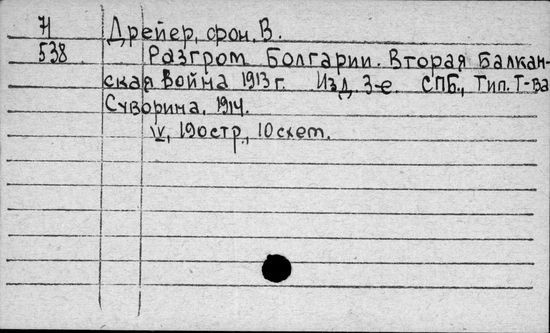 71
538
Дрейер, фон. В.
Разгром Болгарии. Вторая Балкан-
ская война 1913 г. Изд. 3-е. СПБ., Тип. Т-ва
Суворина, 1914.
IV, 190 стр., 10 схем.